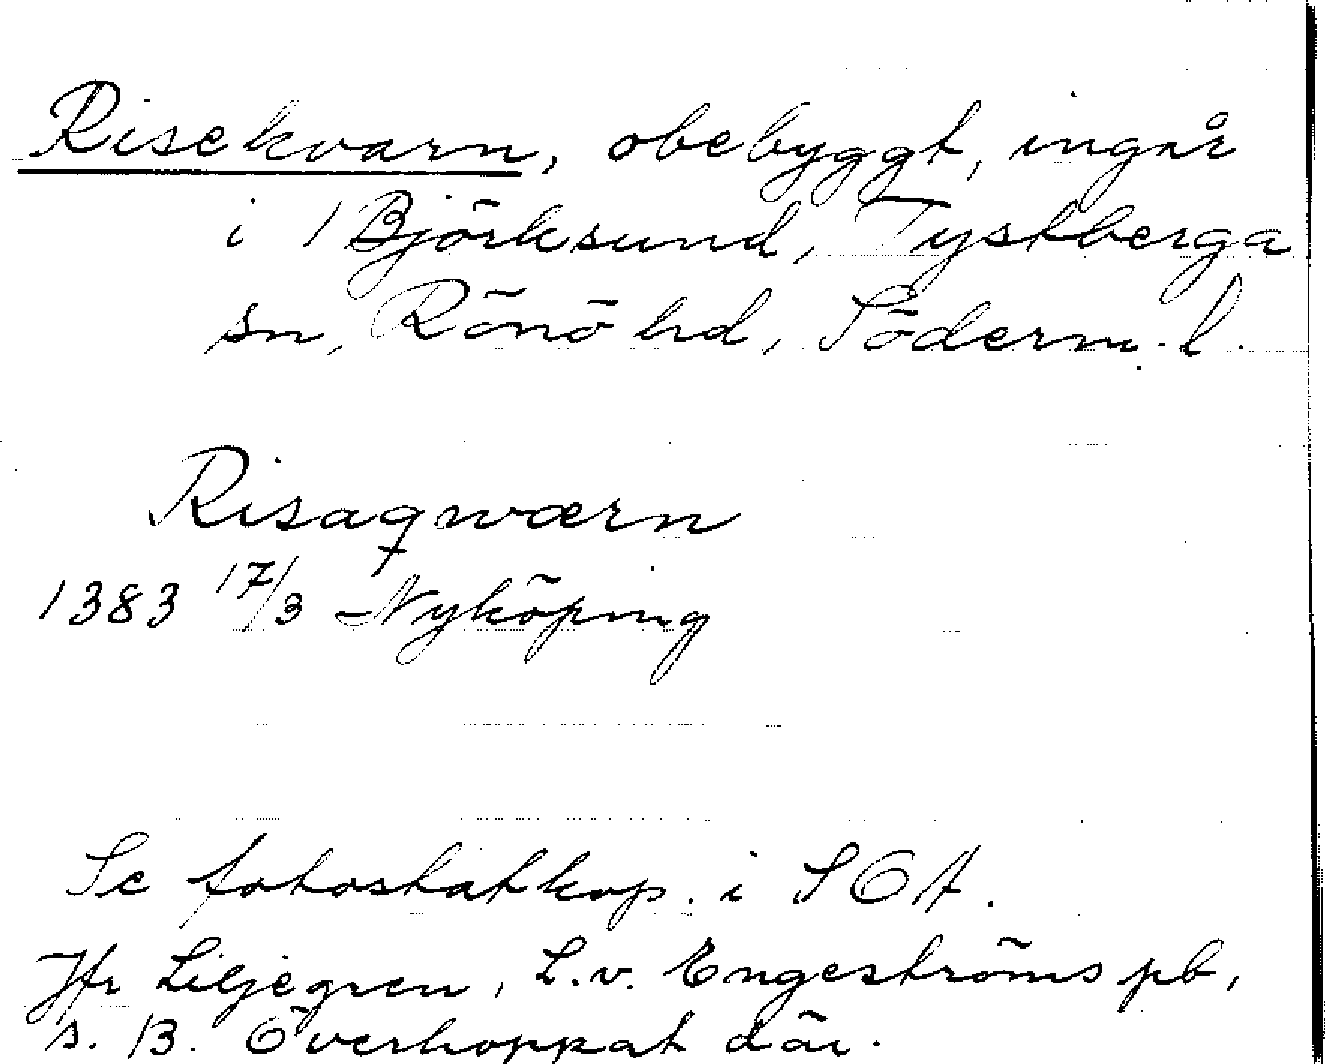 Risekvarn, obebyggt, ingår
i 1 Björksund, Tystberga
sn, Rönö hd, Söderm. l.
Risaqwærn
1383 17/3 Nyköping
Se fotostatkop. i SOA.
Jfr Liljegren, L.v. Engeströms pb,
s. 13. Överhoppat där.